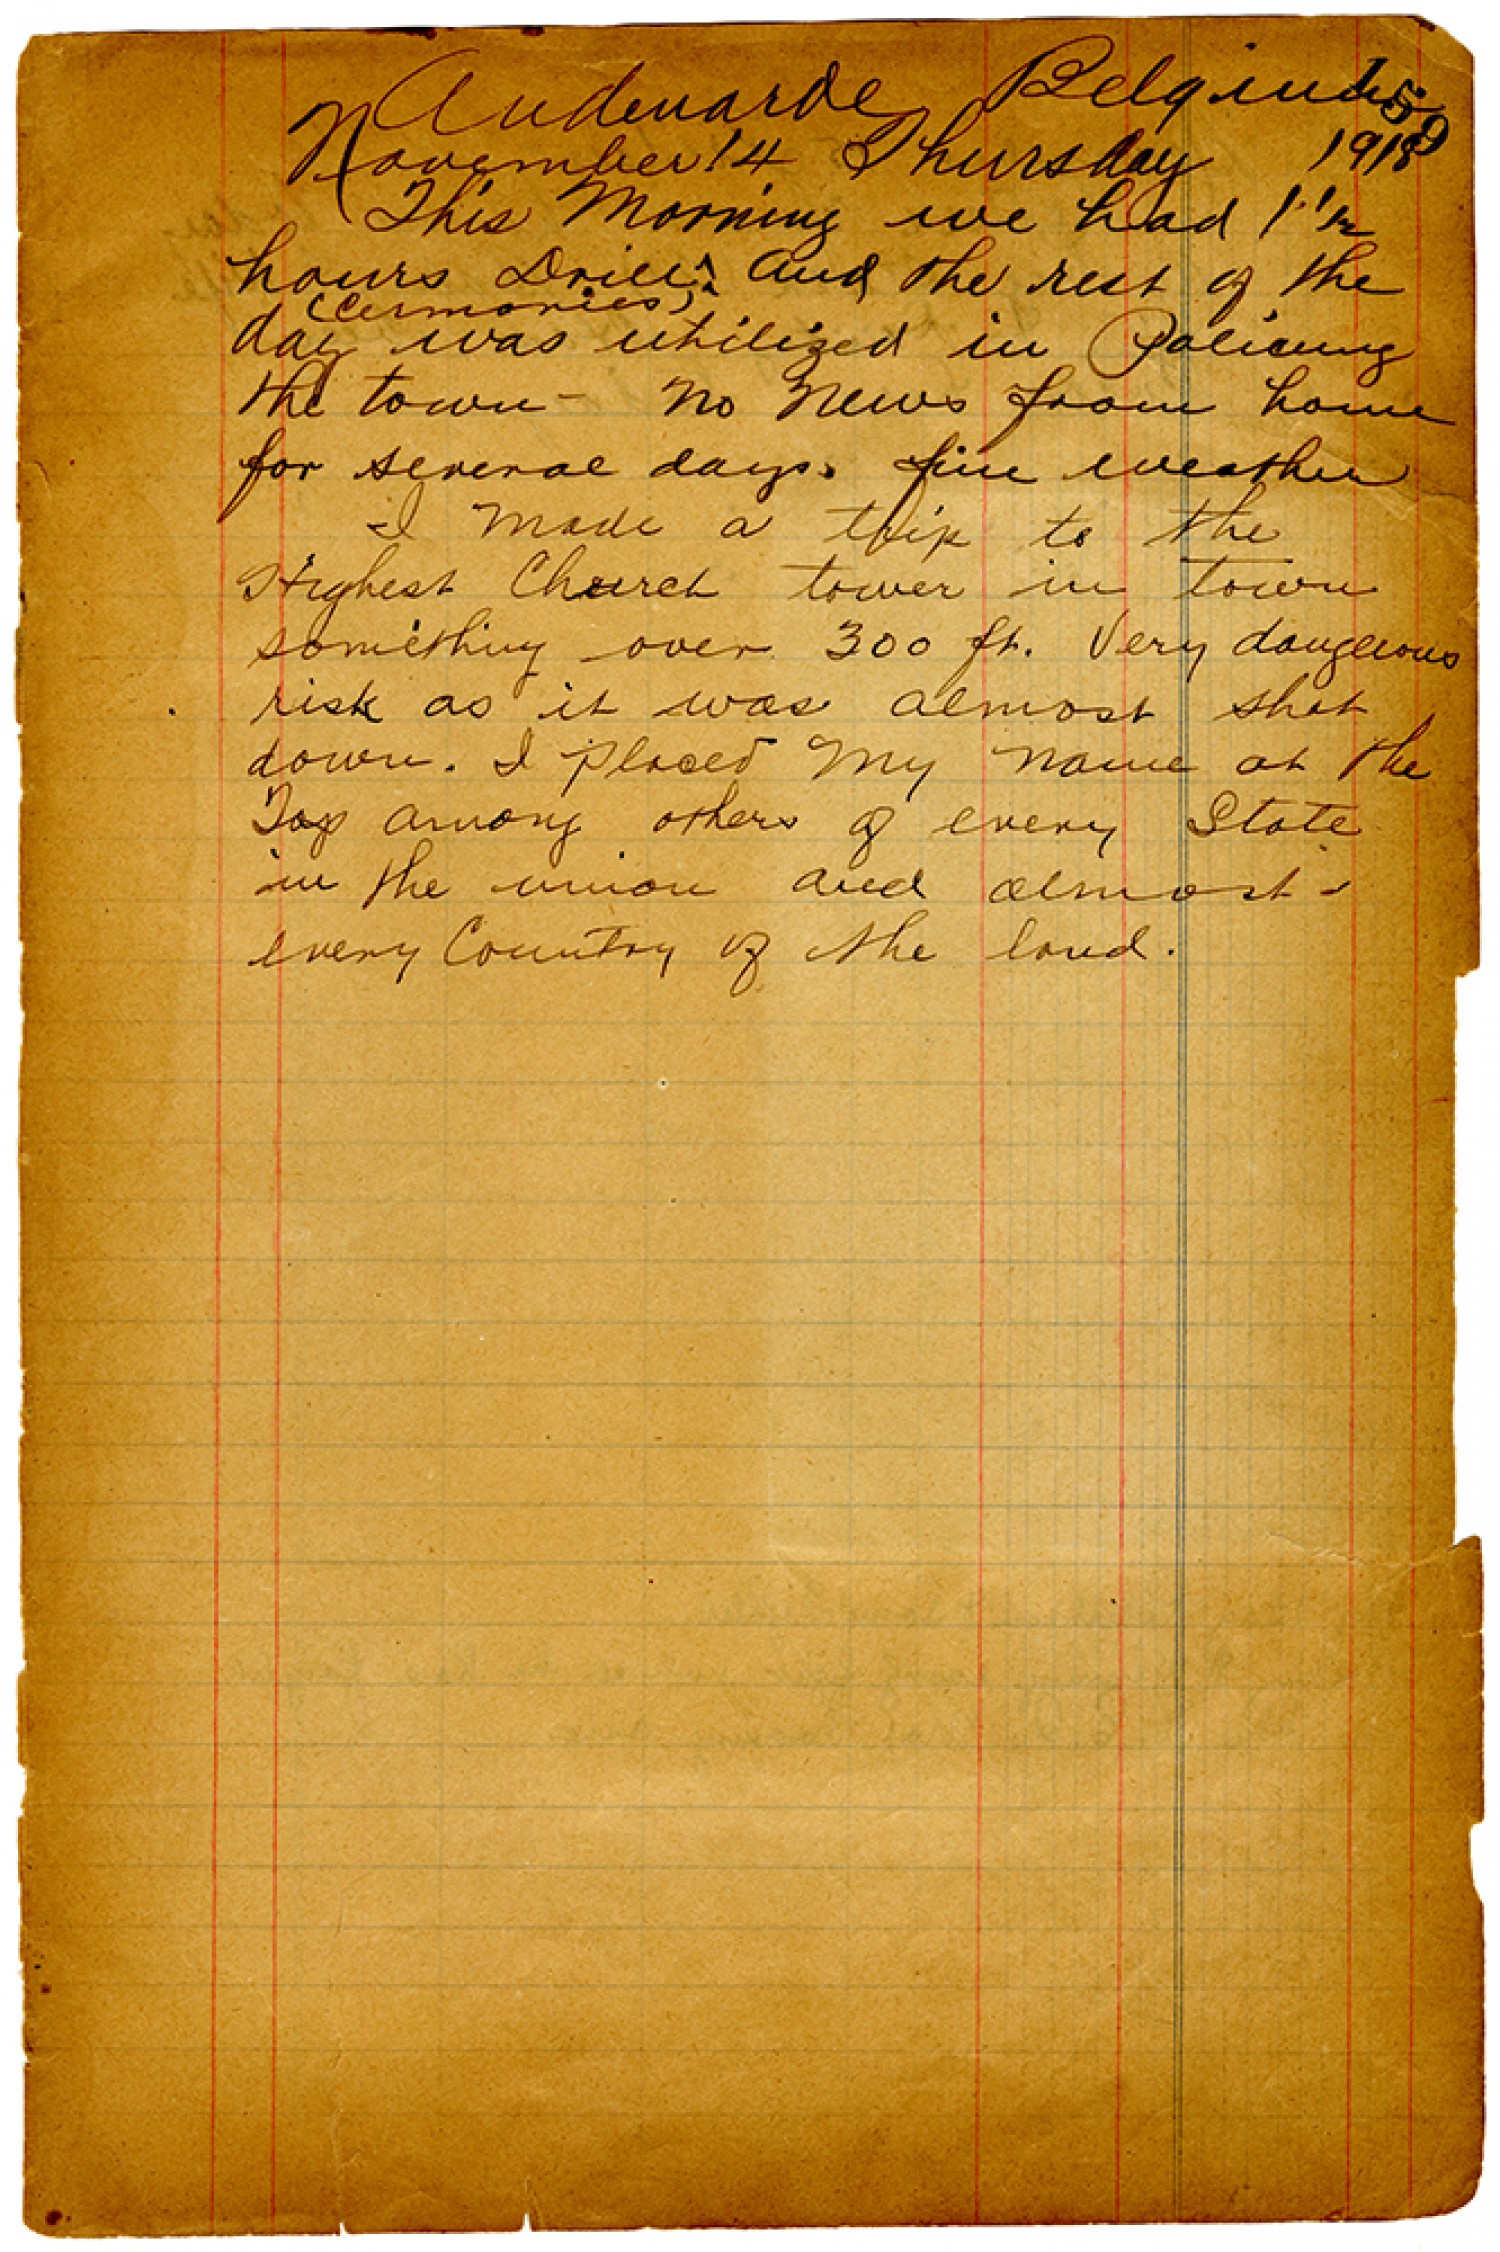 Audenarde Belgium 159
November 14 Thursday 1918
This Morning we had 1 1/2
hours Drill, And the rest of the
(Cermonies)
day was utilized in Policing
the town - No News from home
for several days. fine weather
I made a trip to the
Highest Church tower in town
something over 300 ft. Very dangerous
risk as it was almost shot
down. I placed My name at the
Top among others of every State
in the union and almost -
every Country of the land.